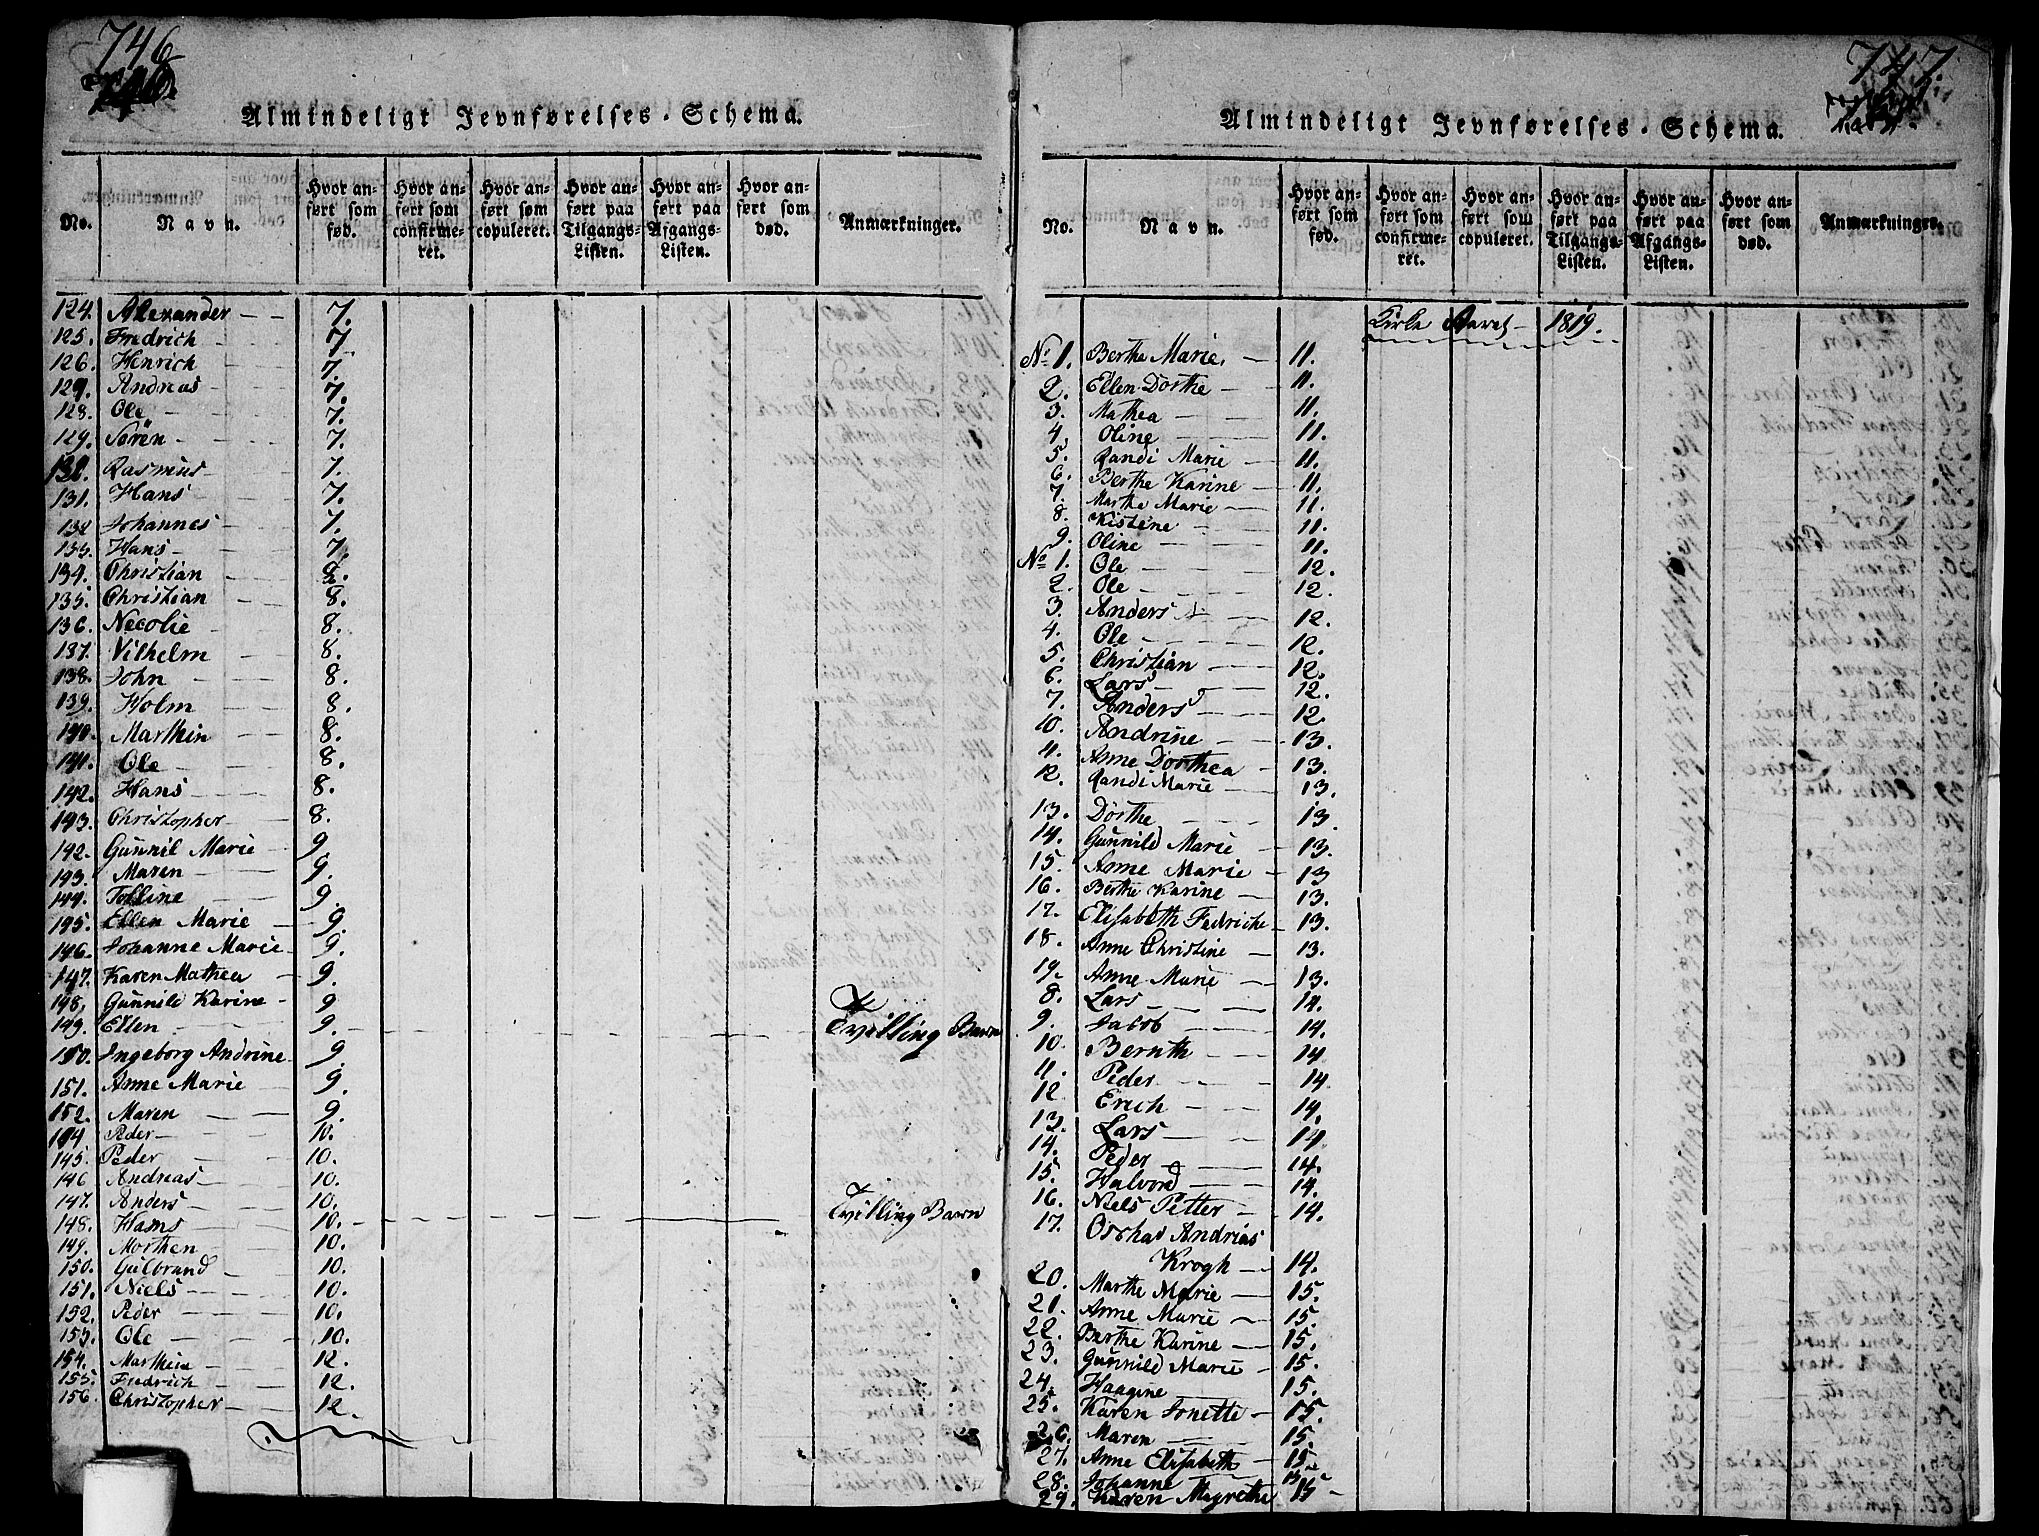 746
Almindeligt Jevnførelses-Schema.
No. Navn. Hvor anført som fød. Hvor anført som confirmeret. Hvor anført som copuleret. Hvor anført paa Tilgangs-Listen. Hvor anført paa Afgangs-Listen. Hvor anført som død. Anmærkninger.
124. Alexander - - 7.
125. Fredrich - 7
126. Henrich - 7.
127. Andreas - 7.
128. Ole - - 7.
129. Sören - - 7.
130. Rasmus - 7.
131. Hans - - 7.
132 Johannes - 7.
133. Hans - - 7.
134. Christian - 8.
135. Christian - - 8.
136. Necolie - - 8.
137. Vilhelm - - 8.
138. John - - 8.
139. Holm - - 8.
140. Marthin - - 8.
141. Ole - - 8.
142. Hans - - 8.
143. Christopher - - 8.
142. Gunnil Marie - 9.
143. Maren - - 9.
144. Tolline - - 9.
145. Ellen Marie - 9.
146. Johanne Marie - 9.
147. Karen Mathea - 9.
148. Gunnild Karine - 9
149. Ellen - - 9. - Tvilling Barn
150. Ingeborg Andrine - 9.
151. Anne Marie - 9.
152. Maren - - 9.
144 Peder - - 10.
145. Peder - - 10.
146 Andreas - - 10.
147. Anders - - 10.
148. Hans - - 10. - Tvilling Barn
149. Morthen - - 10.
150. Gulbrand - 10.
151. Niels - - 10.
152. Peder - - 10.
153. Ole - - 10.
154. Marthin - - 12.
155. Fredrich - - 12.
156. Christopher - - 12.
747.
Almindeligt Jevnførelses-Schema.
No. Navn. Hvor anført som fød. Hvor anført som confirmeret. Hvor anført som copuleret. Hvor anført paa Tilgangs-Listen. Hvor anført paa Afgangs-Listen. Hvor anført som død. Anmærkninger.
Kirke Aaret - 1819.
No 1. Berthe Marie. - 11.
2. Ellen Dorthe - 11.
3. Mathea - - 11.
4. Oline - - 11.
5. Randi Marie - 11.
6. Berthe Karine - 11.
7. Marthe Marie - 11.
8. Kistine - - 11.
9. Oline - - 11.
No 1. Ole - - 12.
2. Ole - - 12.
3. Anders - - 12.
4. Ole - - 12.
5. Christian - - 12.
6. Lars - - 12.
7. Anders - - 12.
10. Andrine - - 13.
11. Anne Dorthea - 13.
12. Randi Marie - 13.
13. Dorthe - - 13.
14. Gunnild Marie - 13.
15. Anne Marie - 13
16. Berthe Karine - 13.
17. Elisabeth Fedriche - 13.
18. Anne Christine - 13.
19. Anne Marie - 13.
8. Lars - - 14.
9. Jacob - - 14.
10. Bernth - - 14
11. Peder - - 14
12 Erich - - 14.
13. Lars - - 14
14. Peder - - 14.
15. Halvord - - 14.
16. Niels Petter - 14.
17. Andrias
Krogh - 14.
20. Marthe Marie - 15.
21. Anne Marie - 15.
22. Berthe Karine - 15.
23. Gunnild Marie - 15.
24. Haagine - 15.
25. Karen Jonette - 15.
26. Maren - - 15.
27. Anne Elisabeth - 15.
28. Johanne - 15
29. Karen Magrethe 15 -